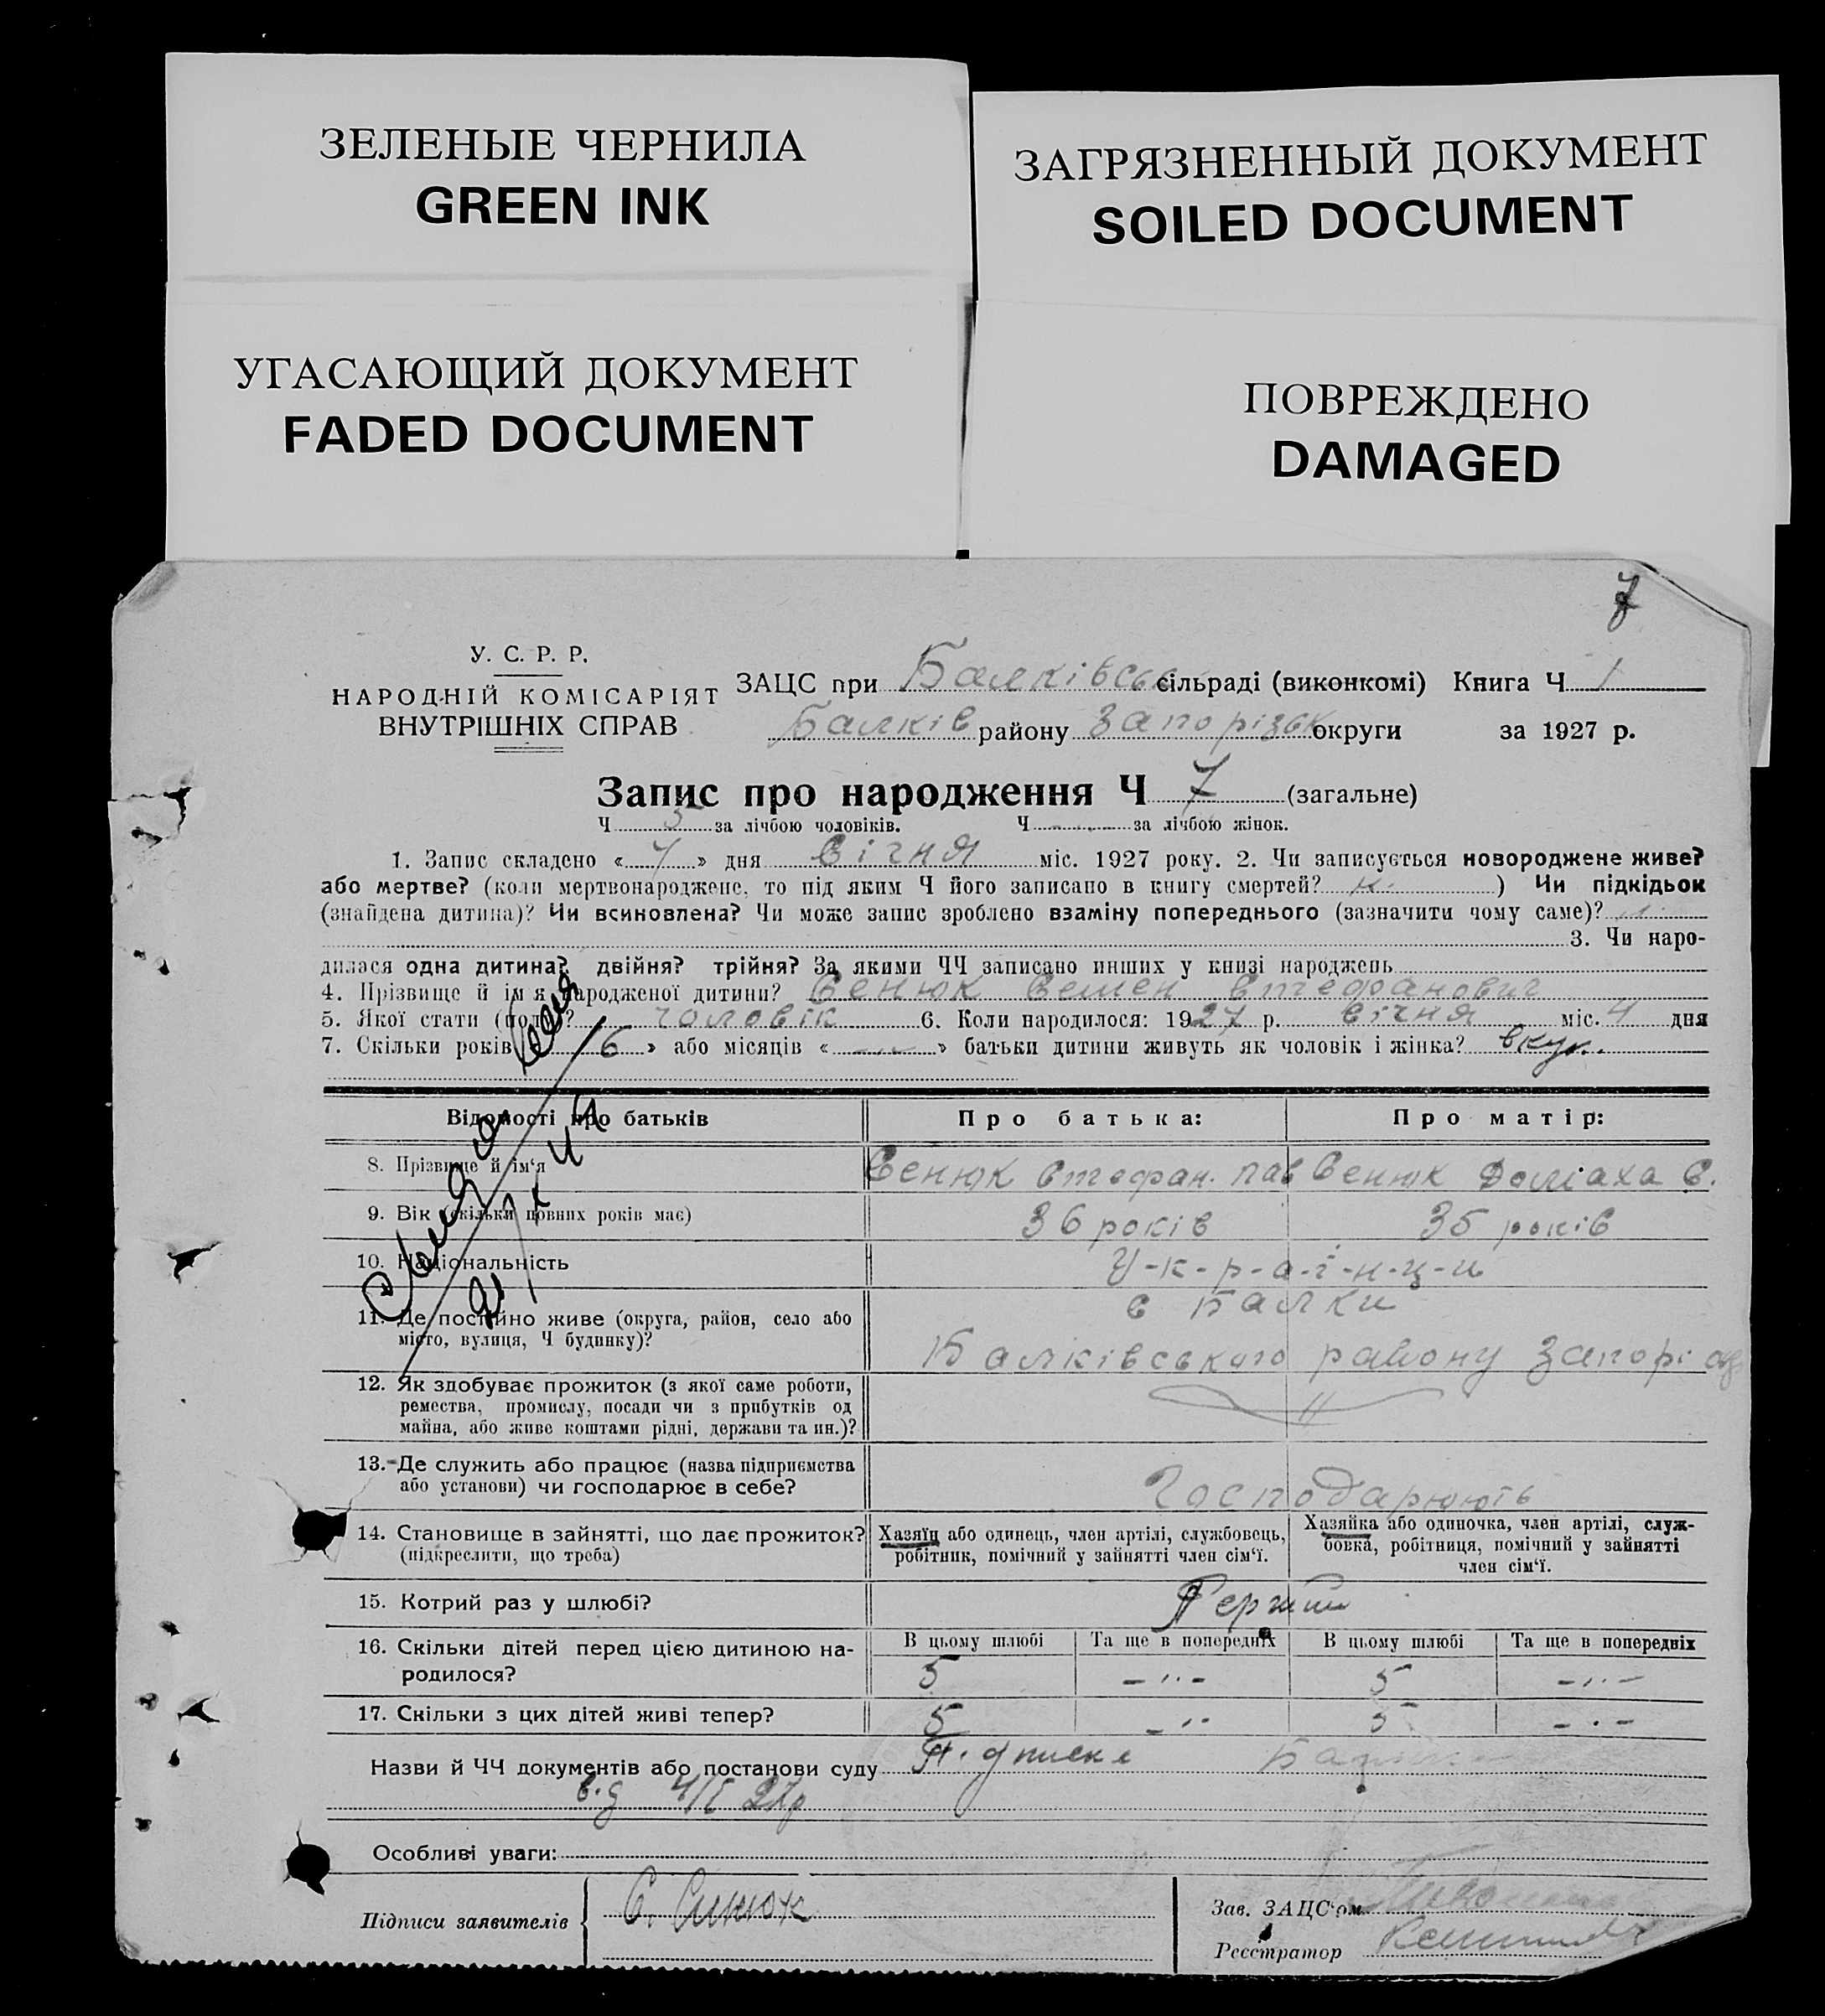 ЗЕЛЕНЫЕ ЧЕРНИЛА
GREEN INK
ЗАГРЯЗНЕННЫЙ ДОКУМЕНТ
SOILED DOCUMENT
УГАСАЮЩИЙ ДОКУМЕНТ
FADED DOCUMENT
ПОВРЕЖДЕНО
DAMAGED
7
У. С. Р. Р.
НАРОДНІЙ КОМІСАРІЯТ
ВНУТРІШНІХ СПРАВ
ЗАЦС при Балківськ сільраді (виконкомі) Книга Ч 1
Балків району Запорізьк округи за 1927 р.
Запис про народження Ч 7 (загальне)
Ч 5 за лічбою чоловіків. Ч за лічбою жінок.
1. Запис складено « 4 » дня Січня міс. 1927 року. 2. Чи записується новороджене живе?
або мертве? (коли мертвонароджене, то під яким Ч його записано в книгу смертей? ) Чи підкідьок
(знайдена дитина)? Чи всиновлена? Чи може запис зроблено взаміну попереднього (зазначити чому саме)?
3. Чи наро-
дилася одна дитина? двійня? трійня? За якими ЧЧ записано инших у книзі народжень
4. Прізвище й ім'я народженої дитини? Сенюк Семен Стефанович
5. Якої стати (полу)? чоловік 6. Коли народилося: 1927 р. січня міс. 4 дня
7. Скільки років « 6 » або місяців « -„- » батьки дитини живуть як чоловік і жінка? вкуп.
Відомості про батьків
Про батька:
Про матір:
8. Прізвище й ім'я
Сенюк Стефан. Пав
Сенюк Домаха С.
9. Вік (скільки повних років має)
36 років
35 років
10. Національність
У-к-р-а-ї-н-ц-и
11. Де постійно живе (округа, район, село або
місто, вулиця, Ч будинку)?
с Балки
Балківського району Запорі
12. Як здобуває прожиток (з якої саме роботи,
ремества, промислу, посади чи з прибутків од
майна, або живе коштами рідні, держави та ин.)?
-"-
13. Де служить або працює (назва підприємства
або установи) чи господарює в себе?
Господарюють
14. Становище в зайнятті, що дає прожиток?
(підкреслити, що треба)
Хазяїн або одинець, член артілі, службовець,
робітник, помічний у зайнятті член сім'ї.
Хазяйка або одиночка, член артілі, служ-
бовка, робітниця, помічний у зайнятті
член сім'ї.
15. Котрий раз у шлюбі?
16. Скільки дітей перед цією дитиною на-
родилося?
В цьому шлюбі
Та ще в попередніх
В цьому шлюбі
Та ще в попередніх
5
-„-
5
-„-
17. Скільки з цих дітей живі тепер?
5
-„
5
-„-
Назви й ЧЧ документів або постанови суду
від 4/I 27р
Особливі уваги:
Підписи заявителів
С. Синюк
Зав. ЗАЦС'ом
Реєстратор